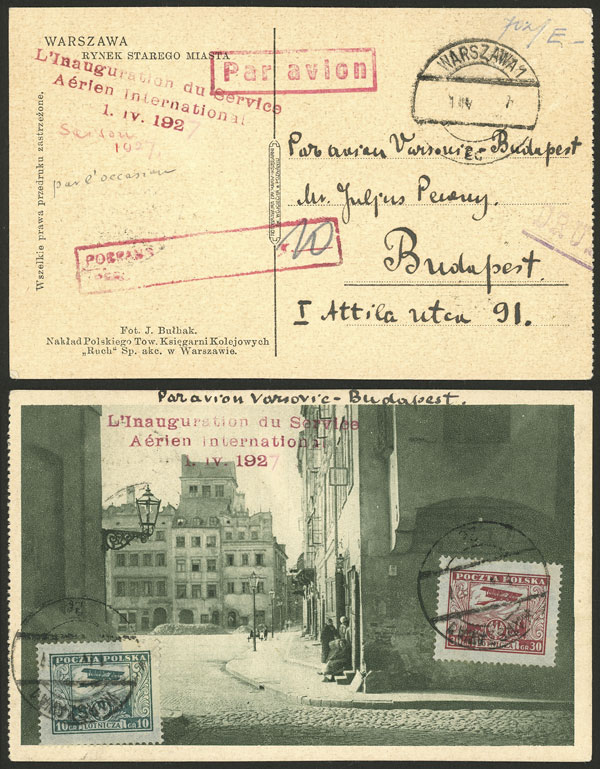 WARSZAWA
RYNEK STAREGO MIASTA
L'Inauguration du Service
Aérien International
1. IV. 1927
Par avion
702/E-
WARSZAWA 1
Saison
1927
par l'occasion
Wszelkie prawa przedruku zastrzeżone.
Par avion Varsovie-Budapest
Mr. Juljus
Budapest.
I Attila utca 91.
POBRANO
10
Fot. J. Bułhak.
Nakład Polskiego Tow. Księgarni Kolejowych
„Ruch" Sp. akc. w Warszawie.
Par avion Varsovie-Budapest.
L'Inauguration du Service
Aérien International
1. IV. 1927
POCZTA POLSKA
GR 30
POCZTA POLSKA
10 GR LOTNICZA GR 10